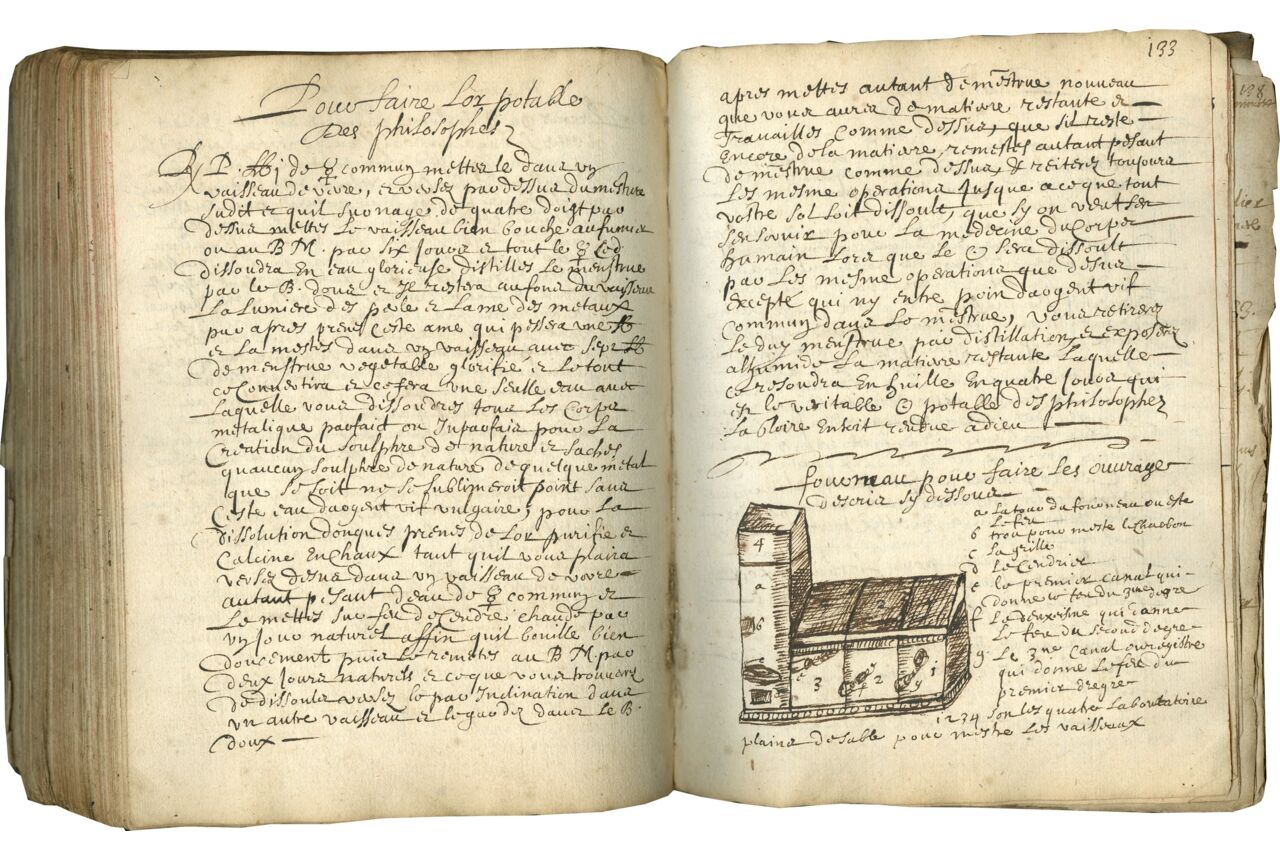 Pour faire lor potable
Des philosophes
R P. ℔ j de ☿ commun mettez le dans vn
vaisseau de verre, et versez par dessus du mēstrue
sudit et quil surnage de quatre doigt par
dessus mettes le vaisseau bien bouche au fumier
ou au B M. par six jours et tout le ☿ ce d
dissoudra En eau glorieuse distilles le mēnstrue
par le B. doux et Il restera au fond du vaisseau
La Lumiere des perle et Lame des metaux
par apres prenes ceste ame qui pesera vne ℔
et La mestes dans vn vaisseau avec sept ℔
de menstrue vegetable glorifié et le tout
ce Convertira et ce fera vne seulle eau avec
Laquelle vous dissoudres tous Les Corps
metalique parfaict ou Inparfais pour La
Creation du soulphre de nature et saches
quaucun soulphre de nature de quelque metal
que se soit ne se sublimeroit point sans
Ceste eau dargent vif vulgaire, pour La
Dissolution donques prenes de Lor purifié et
Calcine En Chaux tant quil vous plaira
versez desus dans vn vaisseau de verre
autant pesant deau de ☿ commun et
Le mettes sur feu de Cendre chaude par
vn jour naturel affin quil bouille bien
doucement puis Le remetes au B M. par
deux Jours naturels et ce que vous trouverez
de dissoults versez le par Inclination dans
vn autre vaisseau et le gardez dans le B.
doux
133
apres mettes autant de mēstrue nouveau
que vous aures de matiere restante et
Travailles comme dessus, que sil reste
Encore de la matiere, remestes autant pesant
de mēstrue comme dessus, & reiterez toujours
Les mesme operations Jusque a ce que tout
vostre sol soit dissoult, que sy on veut sen
sen servir pour La medecine du Corps
humain Lors que le ☉ sera dissoult
par Les mesme operations que desus
Excepte qui ny entre poin dargent vif
Commun dans Le mēstrue, vous retirerez
Le duy menstrue par distillation et exposerez
a Lhumide La matiere restante Laquelle
ce resoudra En huille En quatre Jours qui
est le veritable ☉ potable des philosophes
La Gloire En soit rendue a dieu
fourneau pour faire Les ouvrage
descris sy dessous
a La tour du fourneau ou este
Le feu
b trou pour mestre le Charbon
c La grille
d Le Cendrier
e le premier canal qui
donne le feu du 3me degre
f Le deuxesme qui donne
Le feu du second degre
g Le 3me Canal ou registre
qui donne Le feu du
premier degre
4
a
b
c
d
3
2
1
e
f
g
3
2
1
1 2 3 4 son les quatre Labouratoire
plains de sable pour mestre Les vaisseaux
138